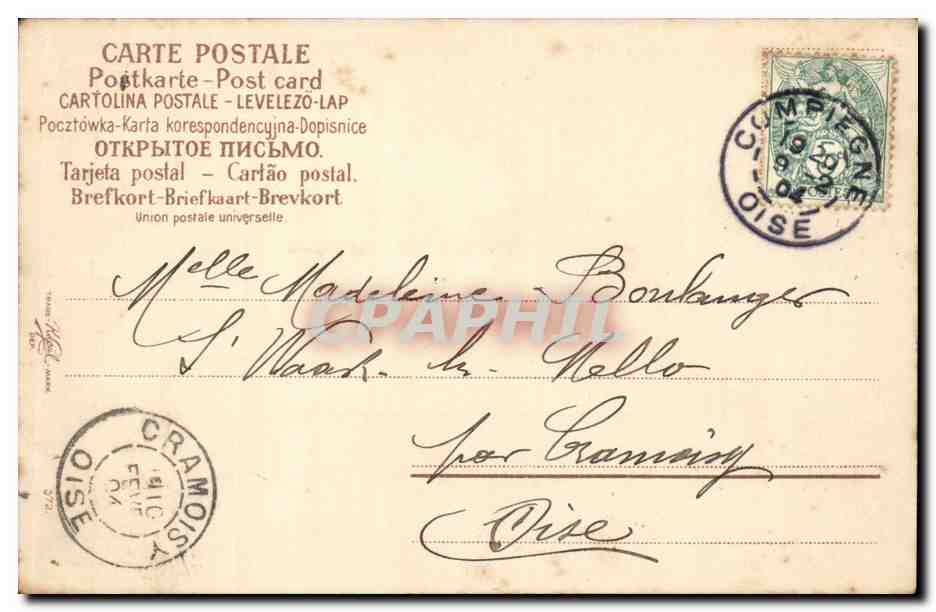 CARTE POSTALE
Postkarte – Post card
CARTOLINA POSTALE – LEVELEZŐ-LAP
Pocztówka-Karta korespondencyjna-Dopisnice
ОТКРЫТОЕ ПИСЬМО.
Tarjeta postal – Cartão postal.
Brefkort-Briefkaart-Brevkort
Union postale universelle.
COMPIEGNE
04
OISE
Melle Madeleine Boulanger
CPAPHIL
St Waast les Mello
par Cramoisy
Oise
TRADE
MARK.
DEP.
372.
CRAMOISY
10
FEVR
04
OISE